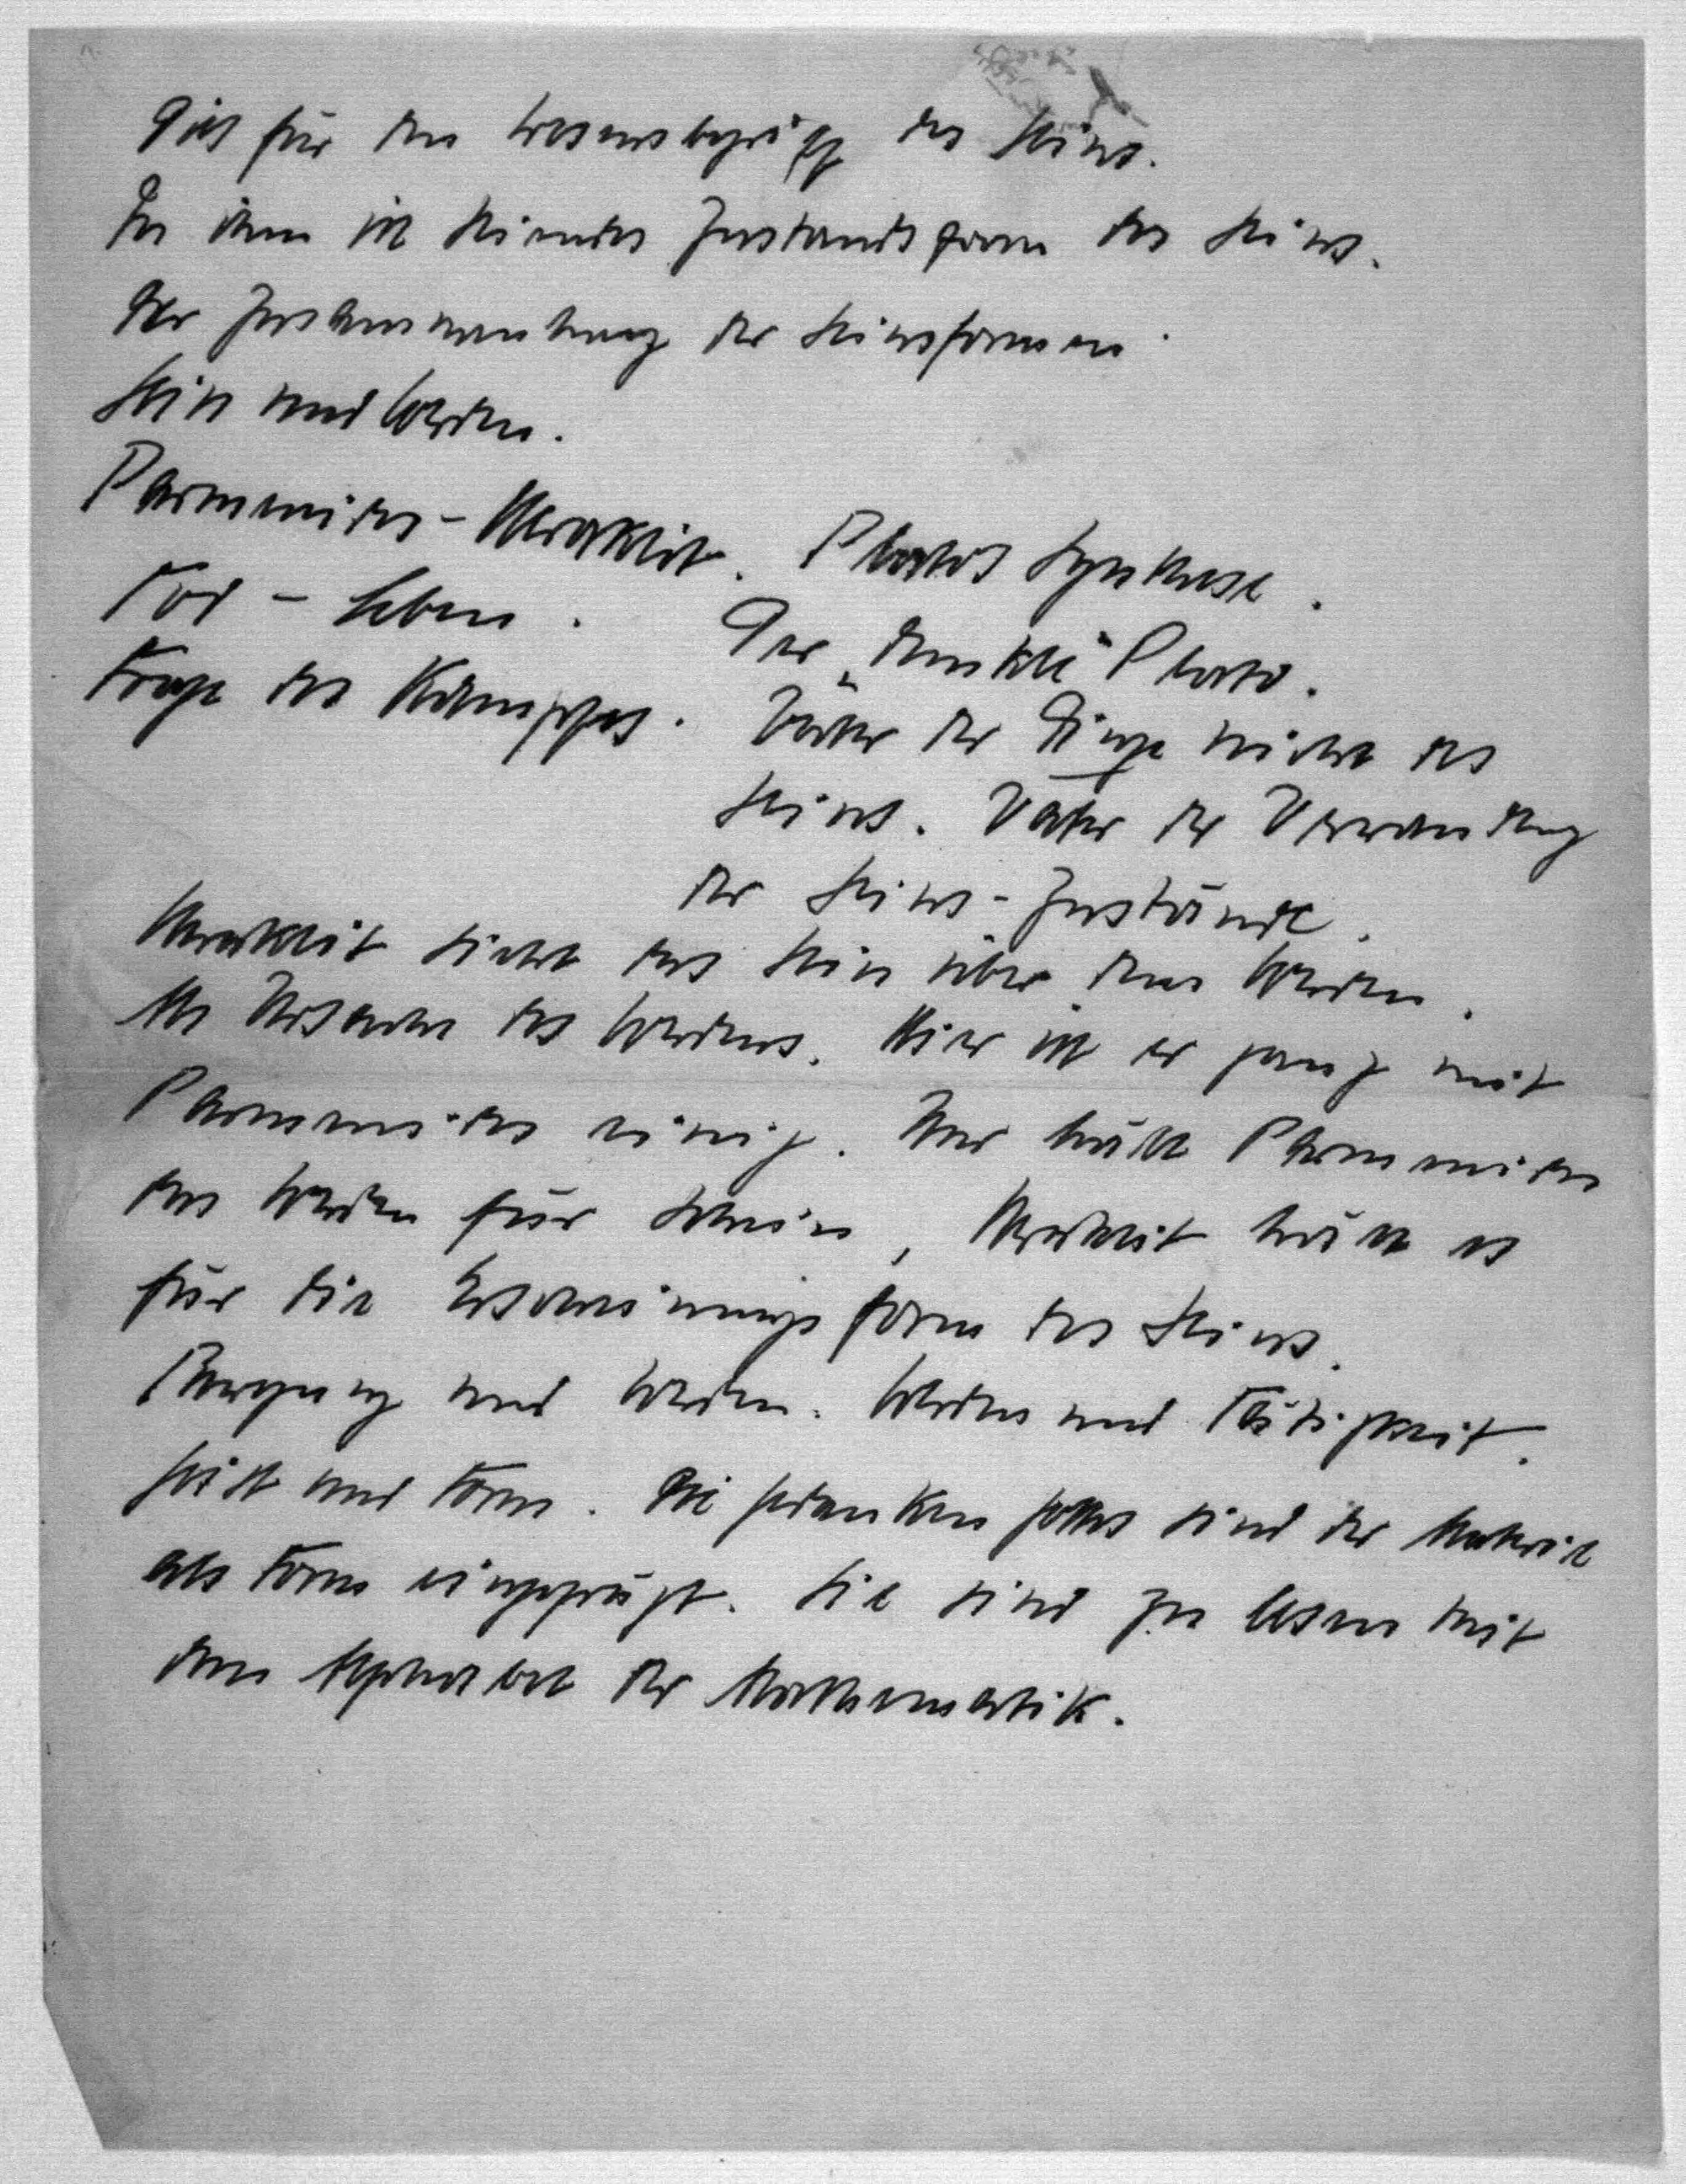 Dies für den Wesensbegriff des Seins.
In ihm ist Seiendes Zustandsform des Seins.
Der Zusammenhang der Seinsformen.
Sein und Werden.
Parmenides – Heraklit. Platos Synthese.
Tod – Leben. Der „dunkle" Plato.
Frage des Kampfes. Vater der Dinge nicht des
Seins. Vater der Verwandlung
der Seins-Zustände.
Heraklit sieht das Sein über dem Werden.
Als Ursache des Werdens. Hier ist er ganz mit
Parmenides einig. Nur hält Parmenides
das Werden für Schein, Heraklit hält es
für die Erscheinungsform des Seins.
Bewegung und Werden. Werden und Tätigkeit.
Geist und Form. Die Gedanken Gottes sind der Materie
als Form eingeprägt. Sie sind zu lesen mit
dem Alphabet der Mathematik.